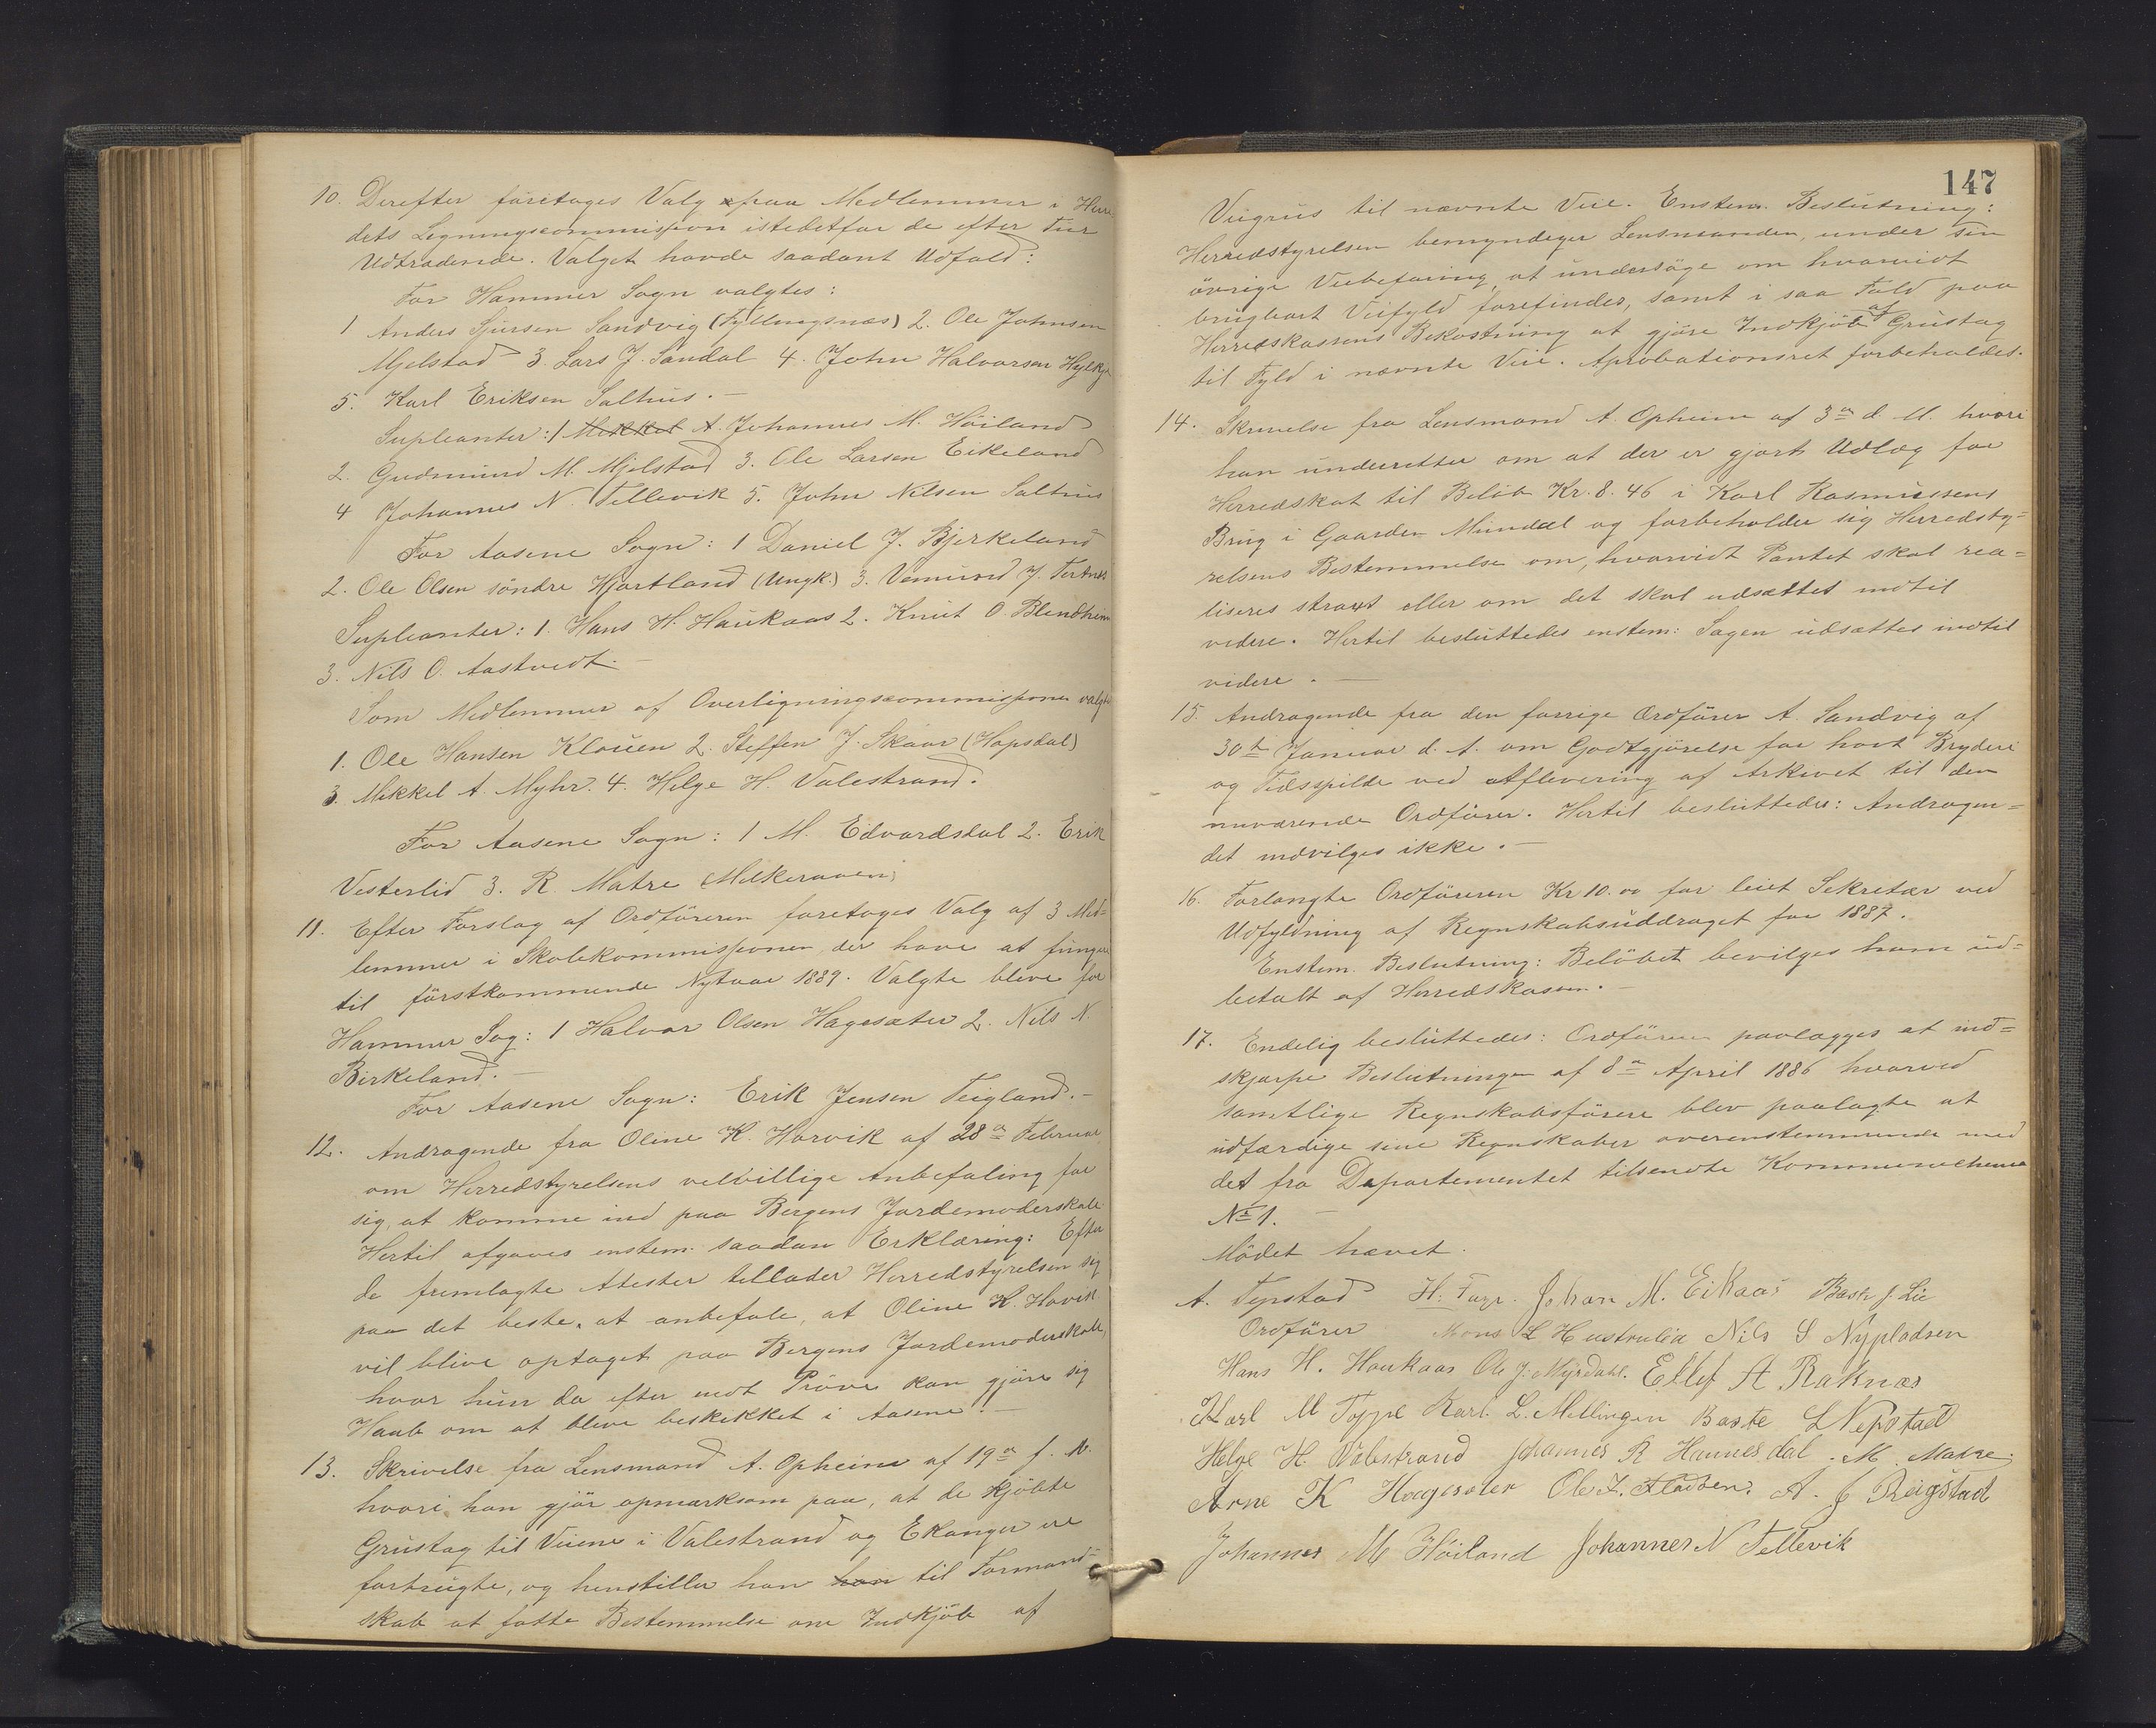 10. Derefter foretages Valg paa Medlemmer i Herre
dets Ligningscommission istedetfor de efter Tur
Udtrædende. Valget havde saadant Udfald:
For Hammer Sogn valgtes:
1 Anders Sjursen Sandvig (Fyllingsnæs) 2. Ole Johnsen
Mjelstad 3. Lars J. Sandal 4. John Halvorsen
5. Karl Eriksen Salhus. –
Supleanter: 1 Mikkel A. Johannes M. Höiland
2. Gudmund M. Mjelstad 3. Ole Larsen Eikeland
4 Johannes N. Tellevik 5. John Nilsen Salhus
For Aasene Sogn: 1 Daniel J. Bjerkeland
2. Ole Olsen söndre Hjortland (Ungk.) 3. Vemund J. Tertnes
Supleanter: 1. Hans H. Haukaas 2. Knut O. Blendheim
3. Nils O. Aastvedt. –
Som Medlemmer af Overligningscommissionen valgtes
1. Ole Hansen Klauen 2. Steffen J. Skaar (Hopsdal)
3. Mikkel A. Myhr. 4. Helge H. Valestrand.
For Aasene Sogn: 1 M. Edvardsdal 2. Erik
Vesterlid 3. R. Matre
11. Efter Forslag af Ordföreren foretages Valg af 3 Med=
lemmer i Skolekommissionen der have at fungere
til förstkommende Nytaar 1889. Valgte bleve for
Hammer Sog: 1 Halvor Olsen Hagesæter 2. Nils N.
Birkeland. –
For Aasene Sogn: Erik Jensen Teigland. –
12. Andragende fra Oline K. Horvik af 28de Februar
om Herredstyrelsens velvillige Anbefaling for
sig, at komme ind paa Bergens Jordemoderskole
Hertil afgaves enstem. saadan Erklæring: Efter
de fremlagte Atester tillader Herredstyrelsen sig
paa det beste, at anbefale, at Oline K. Hovik
vil blive optaget paa Bergens Jordemoderskole,
hvor hun da efter endt Pröve kan gjöre sig
Haab om at blive beskikket i Aasene. –
13. Skrivelse fra Lensmand A. Opheim af 19de f. M.
hvori han gjör opmærksom paa, at de kjöbte
Grustag til Veiene i Valestrand og Ekanger ere
forbrugte, og henstiller han han til Formand=
skab at fatte Bestemmelse om Indkjöb af
147
Veigrus til nævnte Veie. Enstem. Beslutning:
Herredstyrelsen bemyndiger Lensmanden, under sin
övrige Veibefaring, at undersöge om hvorvidt
brugbart Veifyld forefindes, samt i saa Fald paa
Herredskassens Bekostning at gjöre Indkjöb af Grustag
til Fyld i nævnte Veie. Aprobationsret forbeholdes.
14. Skrivelse fra Lensmand A. Opheim af 3de d. M. hvori
han underretter om at der er gjort Udlæg for
Herredskat til Belöb Kr. 8.46 i Karl Rasmussens
Brug i Gaarden Mundal og forbeholder sig Herredsty=
relsens Bestemmelse om, hvorvidt Pantet skal rea=
liseres straxt eller om det skal udsættes indtil
videre. Hertil besluttedes enstem: Sagen udsættes indtil
videre. –
15. Andragende fra den forrige Ordförer A. Sandvig af
30te Januar d. A. om Godtgjörelse for havt Bryderi
og Tidsspilde ved Aflevering af Arkivet til den
nuværende Ordförer. Hertil besluttedes: Andragen=
det indvilges ikke. –
16. Forlangte Ordföreren Kr 10.00 for leiet Sekretær ved
Udfyldning af Regnskabsuddraget for 1887.
Enstem. Beslutning: Belöbet bevilges ham ud=
betalt af Herredskassen. –
17. Endelig besluttedes: Ordföreren paalægges at ind=
skjærpe Beslutningen af 8de April 1886 hvorved
samtlige Regnskabsförere blev paalagte at
udfærdige sine Regnskaber overenstemmende med
det fra Departementet tilsendte
No 1. –
Mödet hævet.
A. Tepstad H. Fugl. Johan M. Eikaas Bastr J. Lie
Ordförer Mons L Hustrulid Nils S Nypladsen
Hans H. Haukaas Ole J. Myrdahl. Ellef A Raknæs
Karl M Toppe Karl. L. Mellingen Baste L Nepstad
Helge H. Valestrand Johannes R Hannesdal. M. Matre.
Arne K Hagesæter Ole J. A. J Reigstad
Johannes M Höiland Johannes N Tellevik